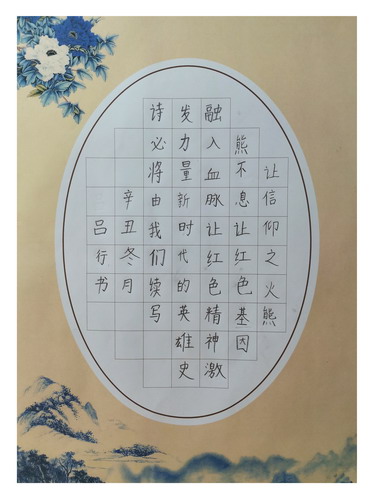 让信仰之火熊
熊不息让红色基因
融入血脉让红色精神激
发力量新时代的英雄史
诗必将由我们续写
辛丑冬月
吕行书